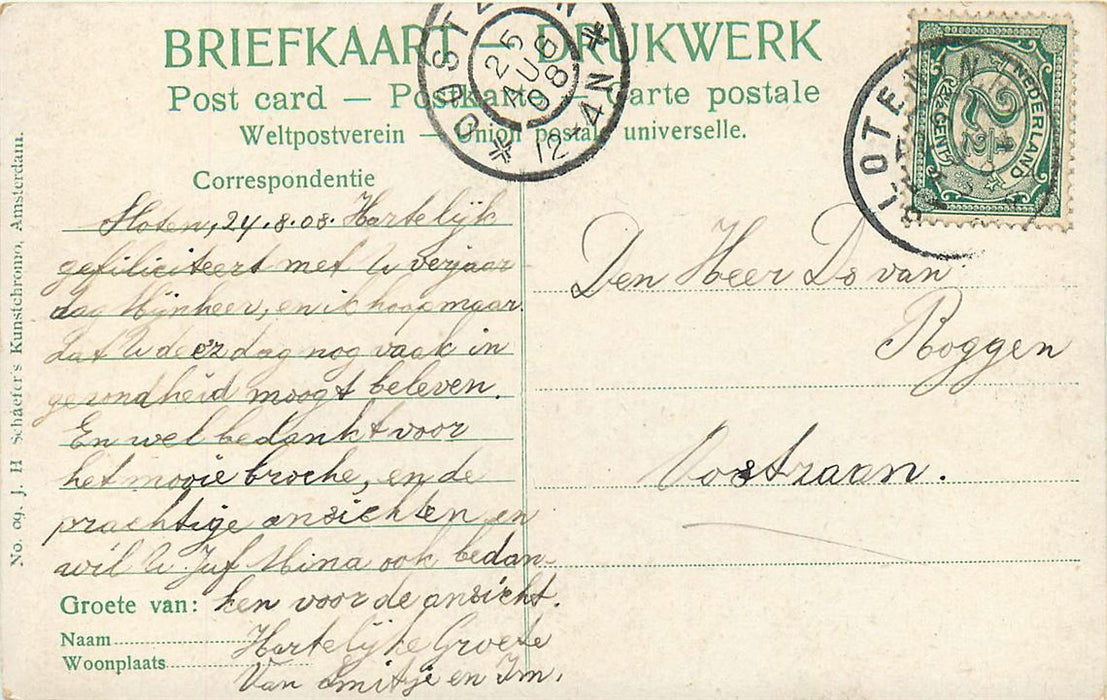 BRIEFKAART – DRUKWERK
Post card – Postkarte – Carte postale
Weltpostverein – Union postale universelle.
OOSTZAAN
25 AUG 08
12-4N
SLOTEN
NEDERLAND
2½
2½ CENT
Correspondentie
Sloten, 24.8.08. Hartelijk
gefiliciteert met U verjaar
dag Mijnheer, en ik hoop maar.
dat U deez dag nog vaak in
gezondheid moogt beleven.
En wel bedankt voor
het mooie broche, en de
prachtige ansichten en
wil U Juf Mina ook bedan-
Groete van: ken voor de ansicht.
Naam Hartelijke Groete
Woonplaats Van Smitje en Im.
Den Heer Ds van
Roggen
Oostzaan.
No. 09. J. H Schaefer's Kunstchromo, Amsterdam.